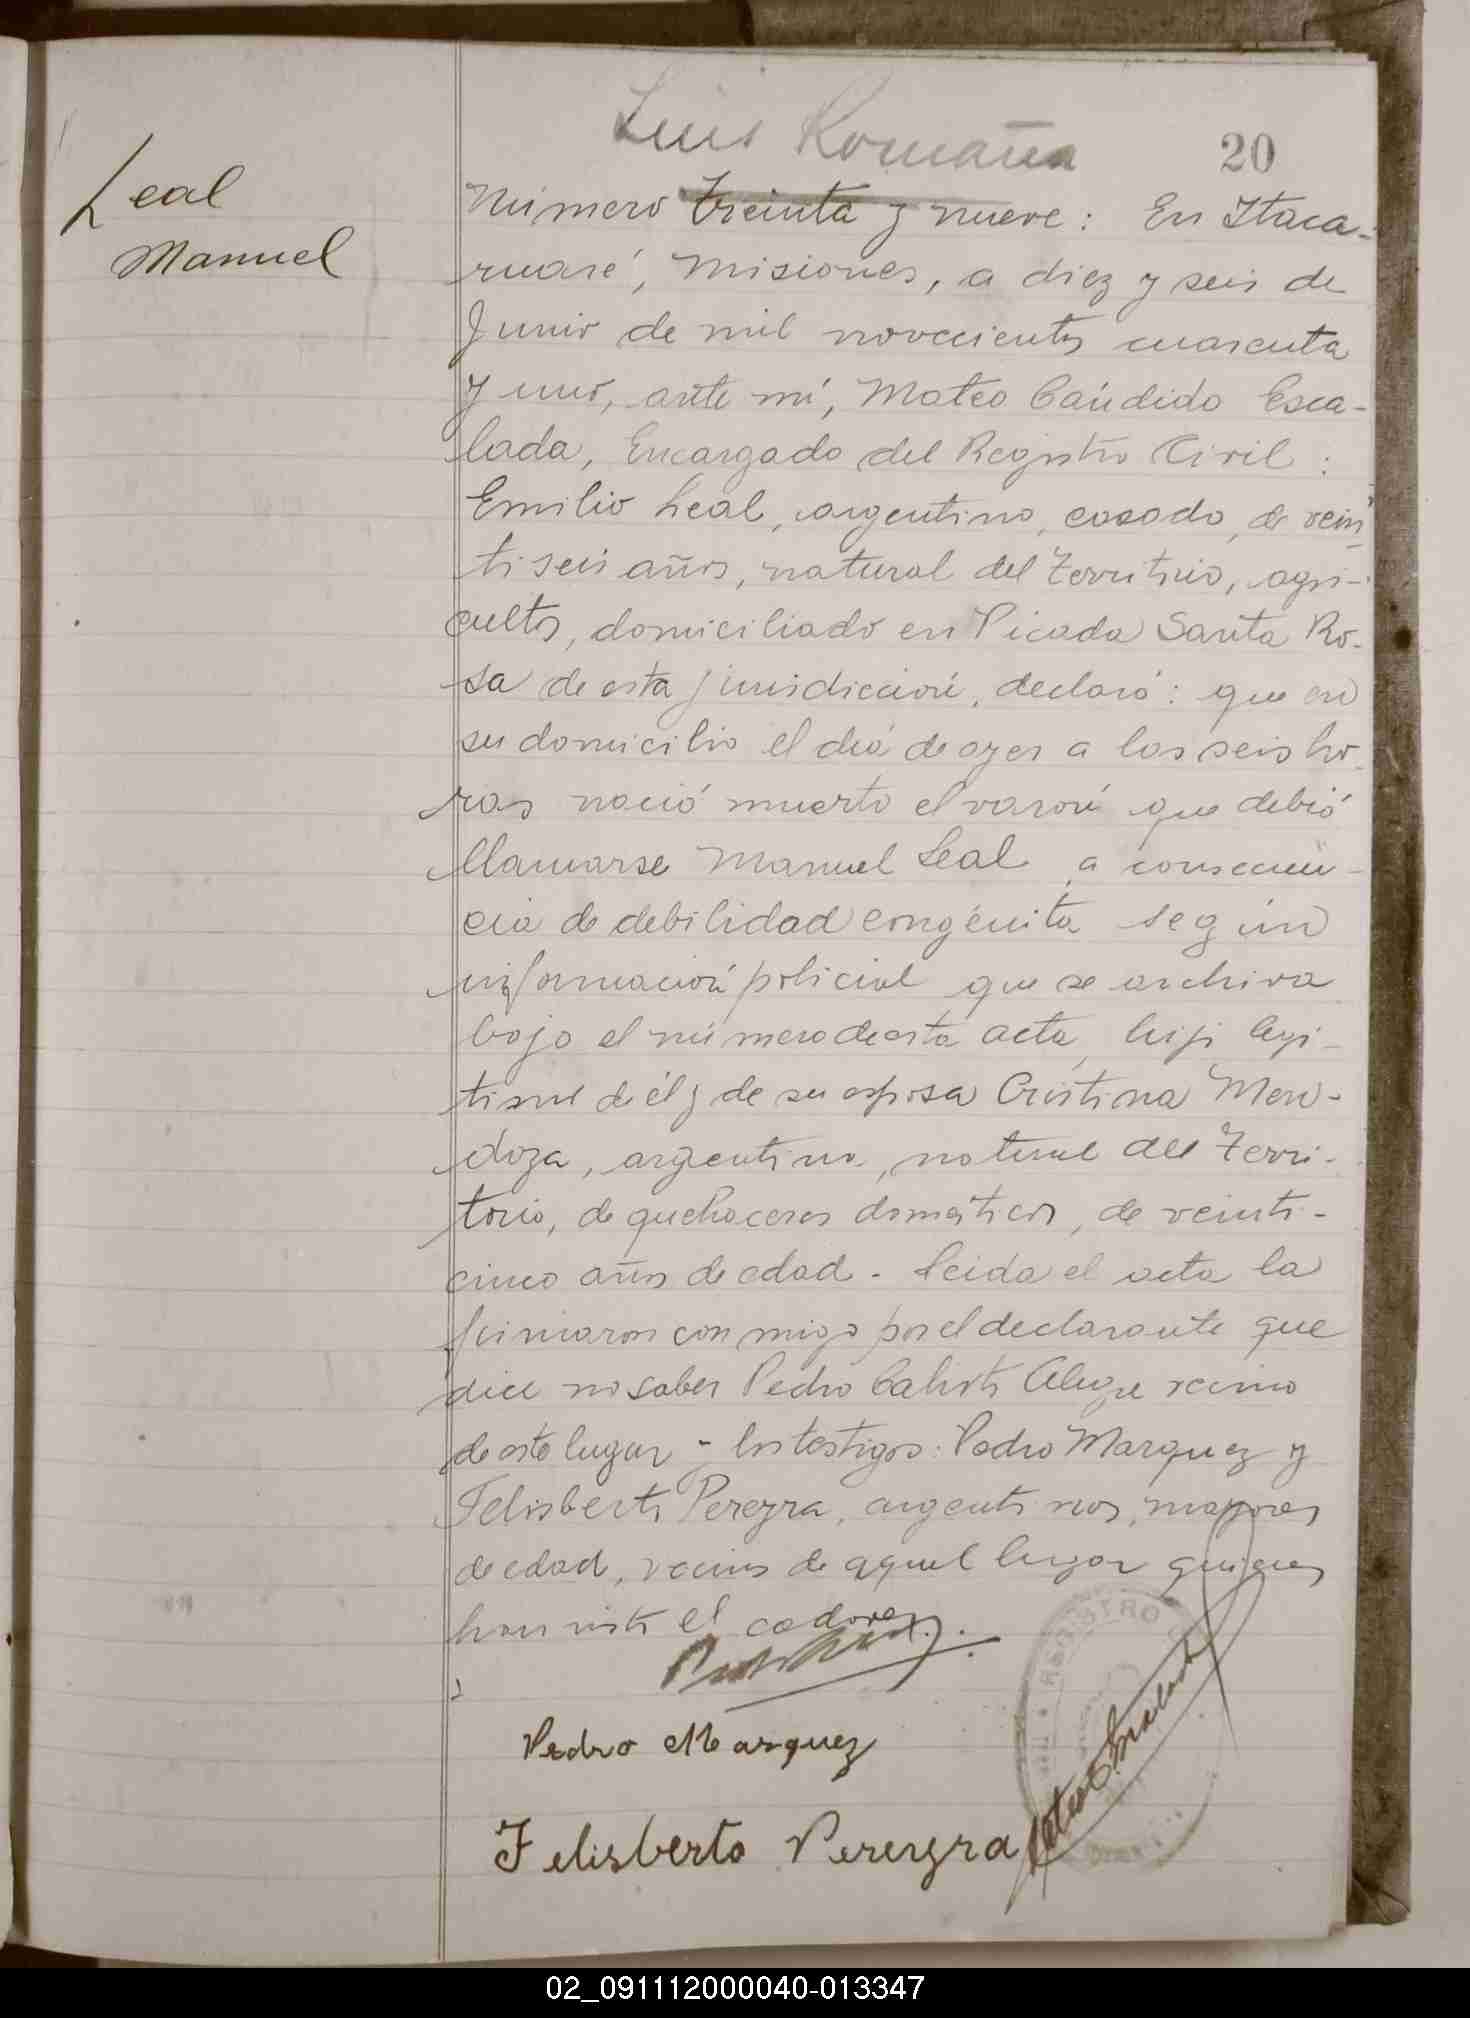 Luis Romaña
20
Leal
Manuel
Número treinta y nueve: En Itaca-
ruaré, Misiones, a diez y seis de
Junio de mil novecientos cuarenta
y uno, ante mí, Mateo Cándido Esca-
lada, Encargado del Registro Civil:
Emilio Leal, argentino, casado, de vein
ti seis años, natural del Territorio, agri-
cultor, domiciliado en Picada Santa Ro-
sa de esta jurisdicción, declaró: que en
su domicilio el día de ayer a las seis ho-
ras nació muerto el varón que debió
llamarse Manuel Leal, a consecuen-
cia de debilidad congénita según
información policial que se archiva
bajo el número de esta acta, hijo legi-
timo de él y de su esposa Cristina Men-
doza, argentina, natural del Terri-
torio, de quehaceres domésticos, de veinti-
cinco años de edad. Leida el acta la
firmaron conmigo por el declarante que
dice no saber Pedro Calisto Alegre vecino
de este lugar y los testigos: Pedro Marquez y
Felisberto Pereyra, argentinos, mayores
de edad, vecinos de aquel lugar quienes
han visto el cadaver.
Pedro Marquez
Felisberto Pereyra
Mateo C. Escalada
REGISTRO
02_091112000040-013347